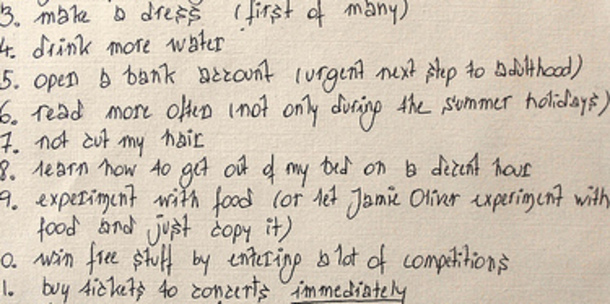 3. make a dress (first of many)
4. drink more water
5. open a bank account (urgent next step to adulthood)
6. read more often (not only during the summer holidays)
7. not cut my hair
8. learn how to get out of my bed on a decent hour
9. experiment with food (or let Jamie Oliver experiment with
food and just copy it)
0. win free stuff by entering a lot of competitions
1. buy tickets to concerts immediately